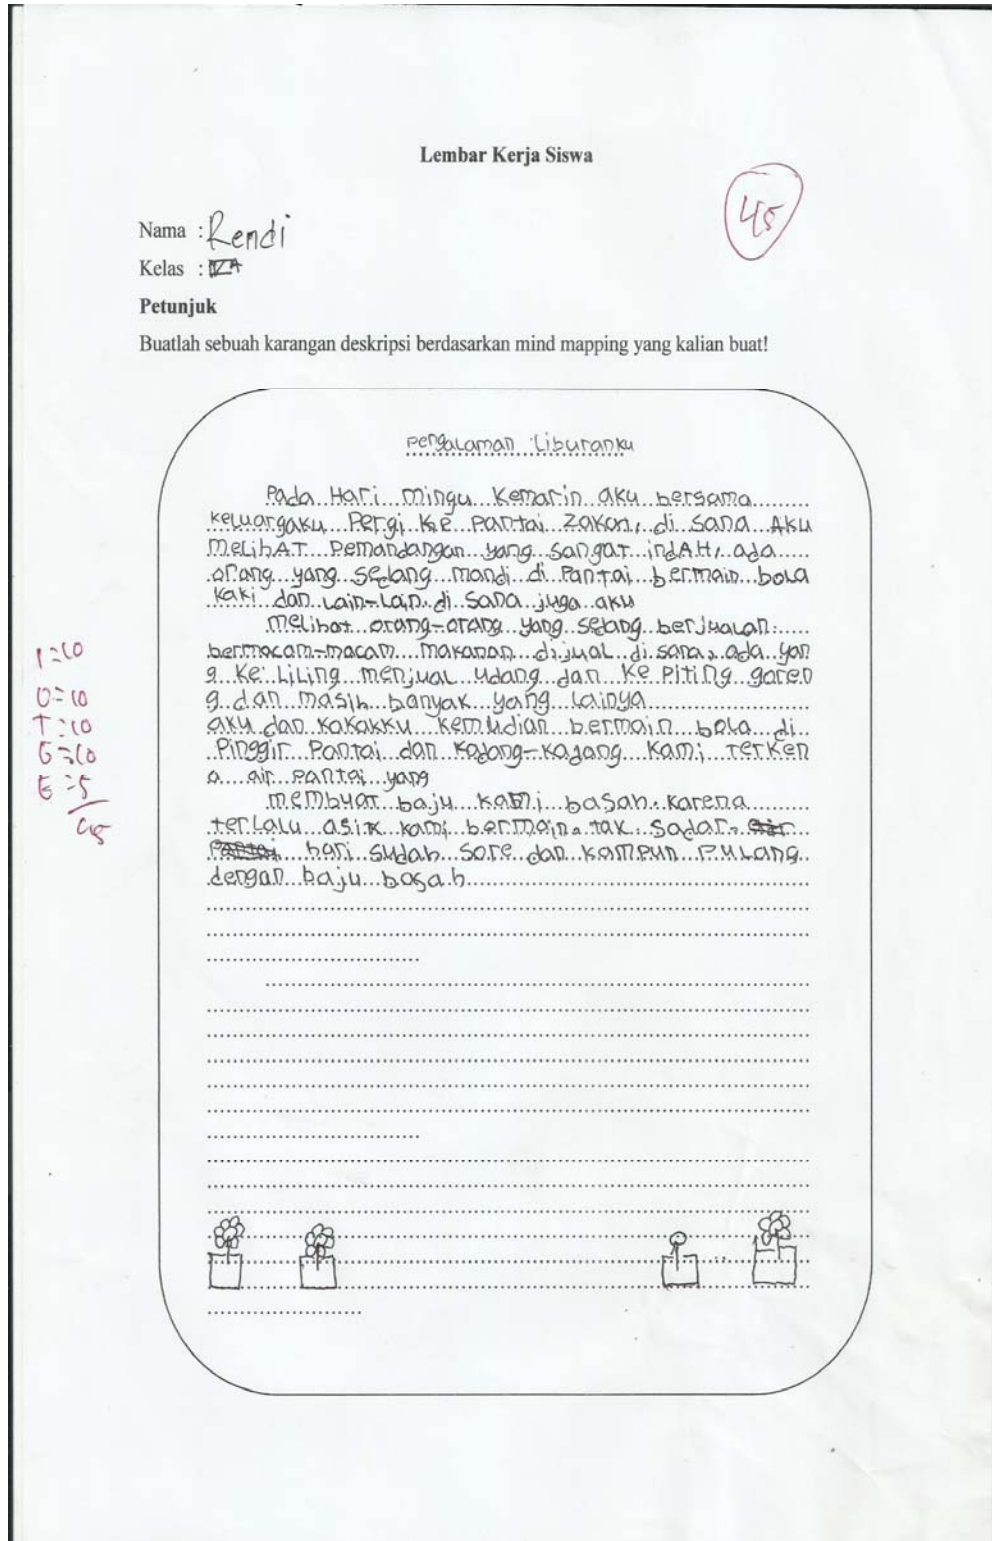 Lembar Kerja Siswa
45
Nama : Rendi
Kelas :
Petunjuk
Buatlah sebuah karangan deskripsi berdasarkan mind mapping yang kalian buat!
Pengalaman Liburanku
Pada Hari mingu Kemarin aku bersama
keluargaku Pergi Ke Pantai Zakon, di sana AKu
MeLihAT Pemandangan yang sangat indAH, ada
orang yang sedang mandi di Pantai bermain bola
Kaki dan Lain-Lain. di sana juga aku
melihat orang-orang yang sedang berjualan.
bermacam-macam makanan dijual di sana, ada yan
g Ke LiLing menjual udang dan Ke Piting goren
g dan masih banyak yang Lainya
aku dan Kakakku kemudian bermain bola di
Pinggir Pantai dan Kadang-Kadang Kami Terken
a air Pantai yang
membuat baju Kami basah. Karena
terLaLu asik Kami bermain. tak Sadar air
Pantai hari sudah Sore dan KamPun PuLang
dengan baju basah
I = 10
O = 10
T = 10
G = 10
E = 5
45